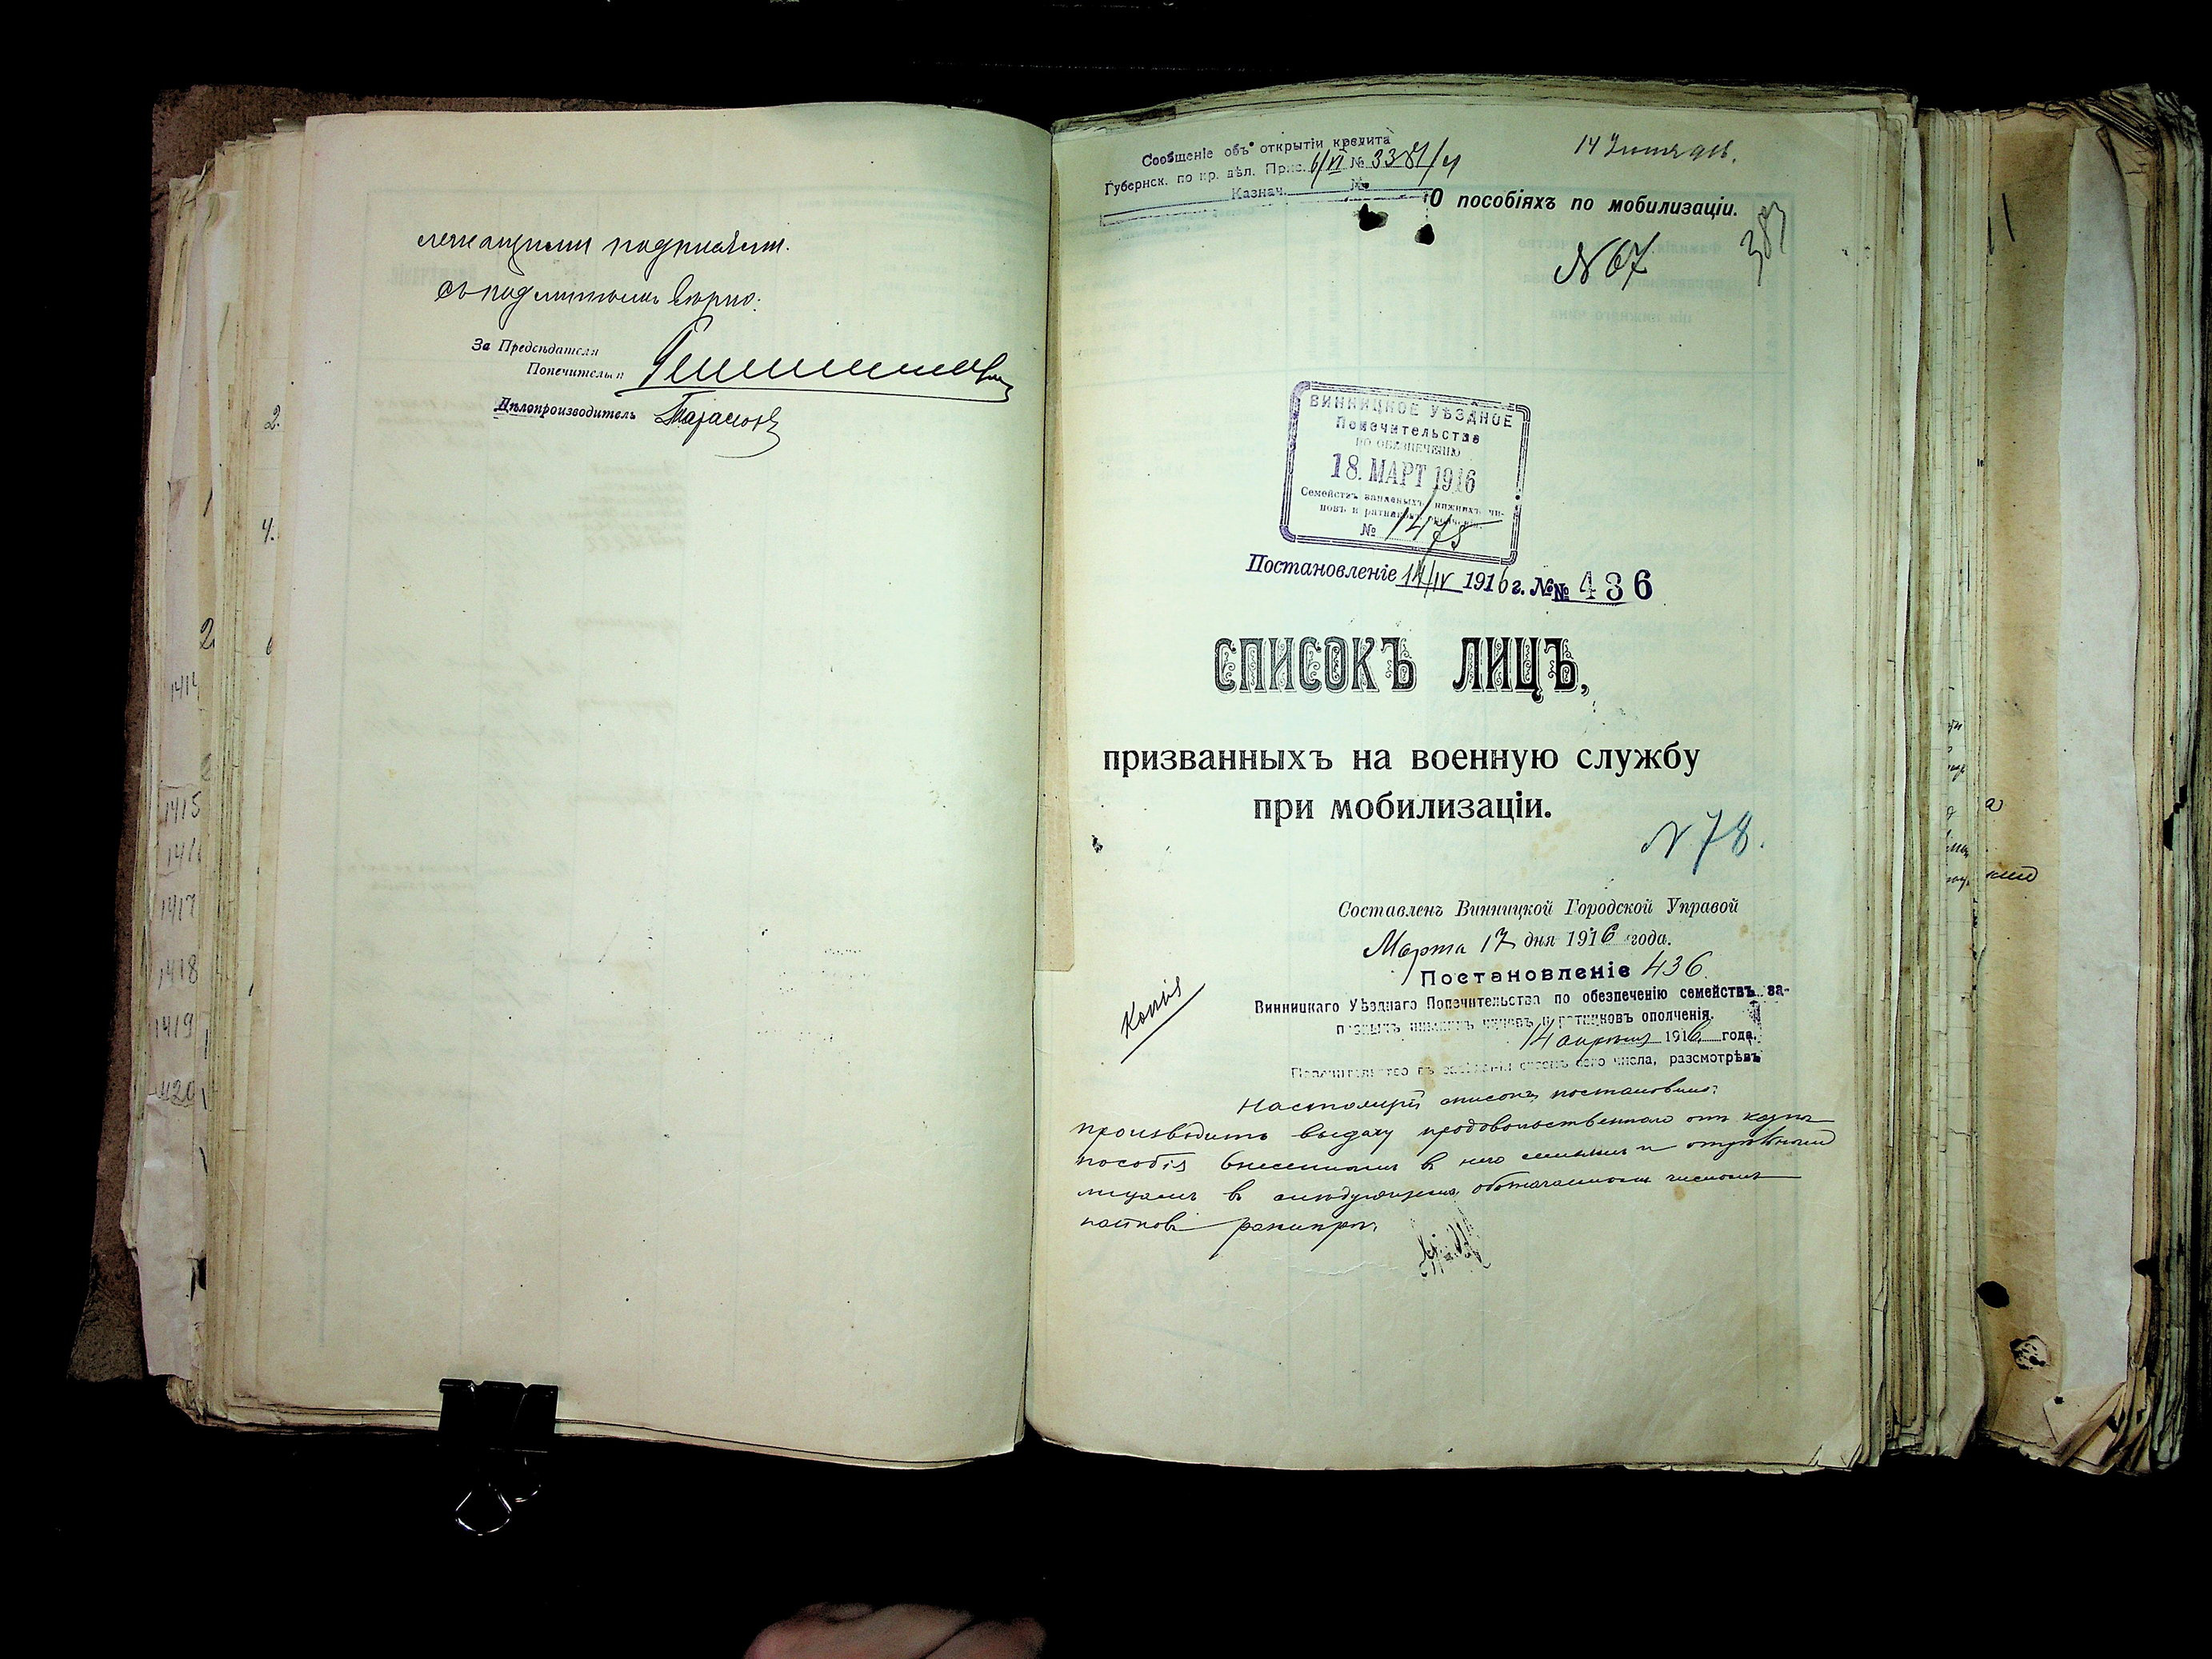 подписями.
съ подлиннымъ вѣрно:
За Предсѣдателя
Попечительн
Дѣлопроизводитель Тарасовъ
2.
4.
2
1414
1415
1416
1417
1418
1419
1420
Сообщеніе объ открытіи кредита
Губернск. по кр. дѣл. Прис. 6/VI № 3381/
Казнач. №
14 1916.
О пособіяхъ по мобилизаціи.
N 67
383
ВИННИЦКОЕ УѢЗДНОЕ
Попечительство
ПО ОБЕЗПЕЧЕНІЮ
18. МАРТ 1916
Семействъ запасныхъ нижнихъ чи-
новъ и ратниковъ ополченія.
№ 1475
Постановленіе 14/IV 1916 г. №№ 436
СПИСОКЪ ЛИЦЪ,
призванныхъ на военную службу
при мобилизаціи.
N 78.
Составленъ Винницкой Городской Управой
Марта 17 дня 1916 года.
Постановленіе 436
Копія
Винницкаго Уѣзднаго Попечительства по обезпеченію семействъ за-
пасныхъ нижнихъ чиновъ и ратниковъ ополченія.
14 апрѣля 1916 года.
Попечительство въ засѣданіи своемъ сего числа, разсмотрѣвъ
Настоящій списокъ, постановило:
производить выдачу продовольственнаго отъ казны
пособія внесеннымъ въ него семьямъ и отдѣльнымъ
лицамъ въ слѣдующемъ обозначенномъ числомъ
пайковъ размѣрѣ.